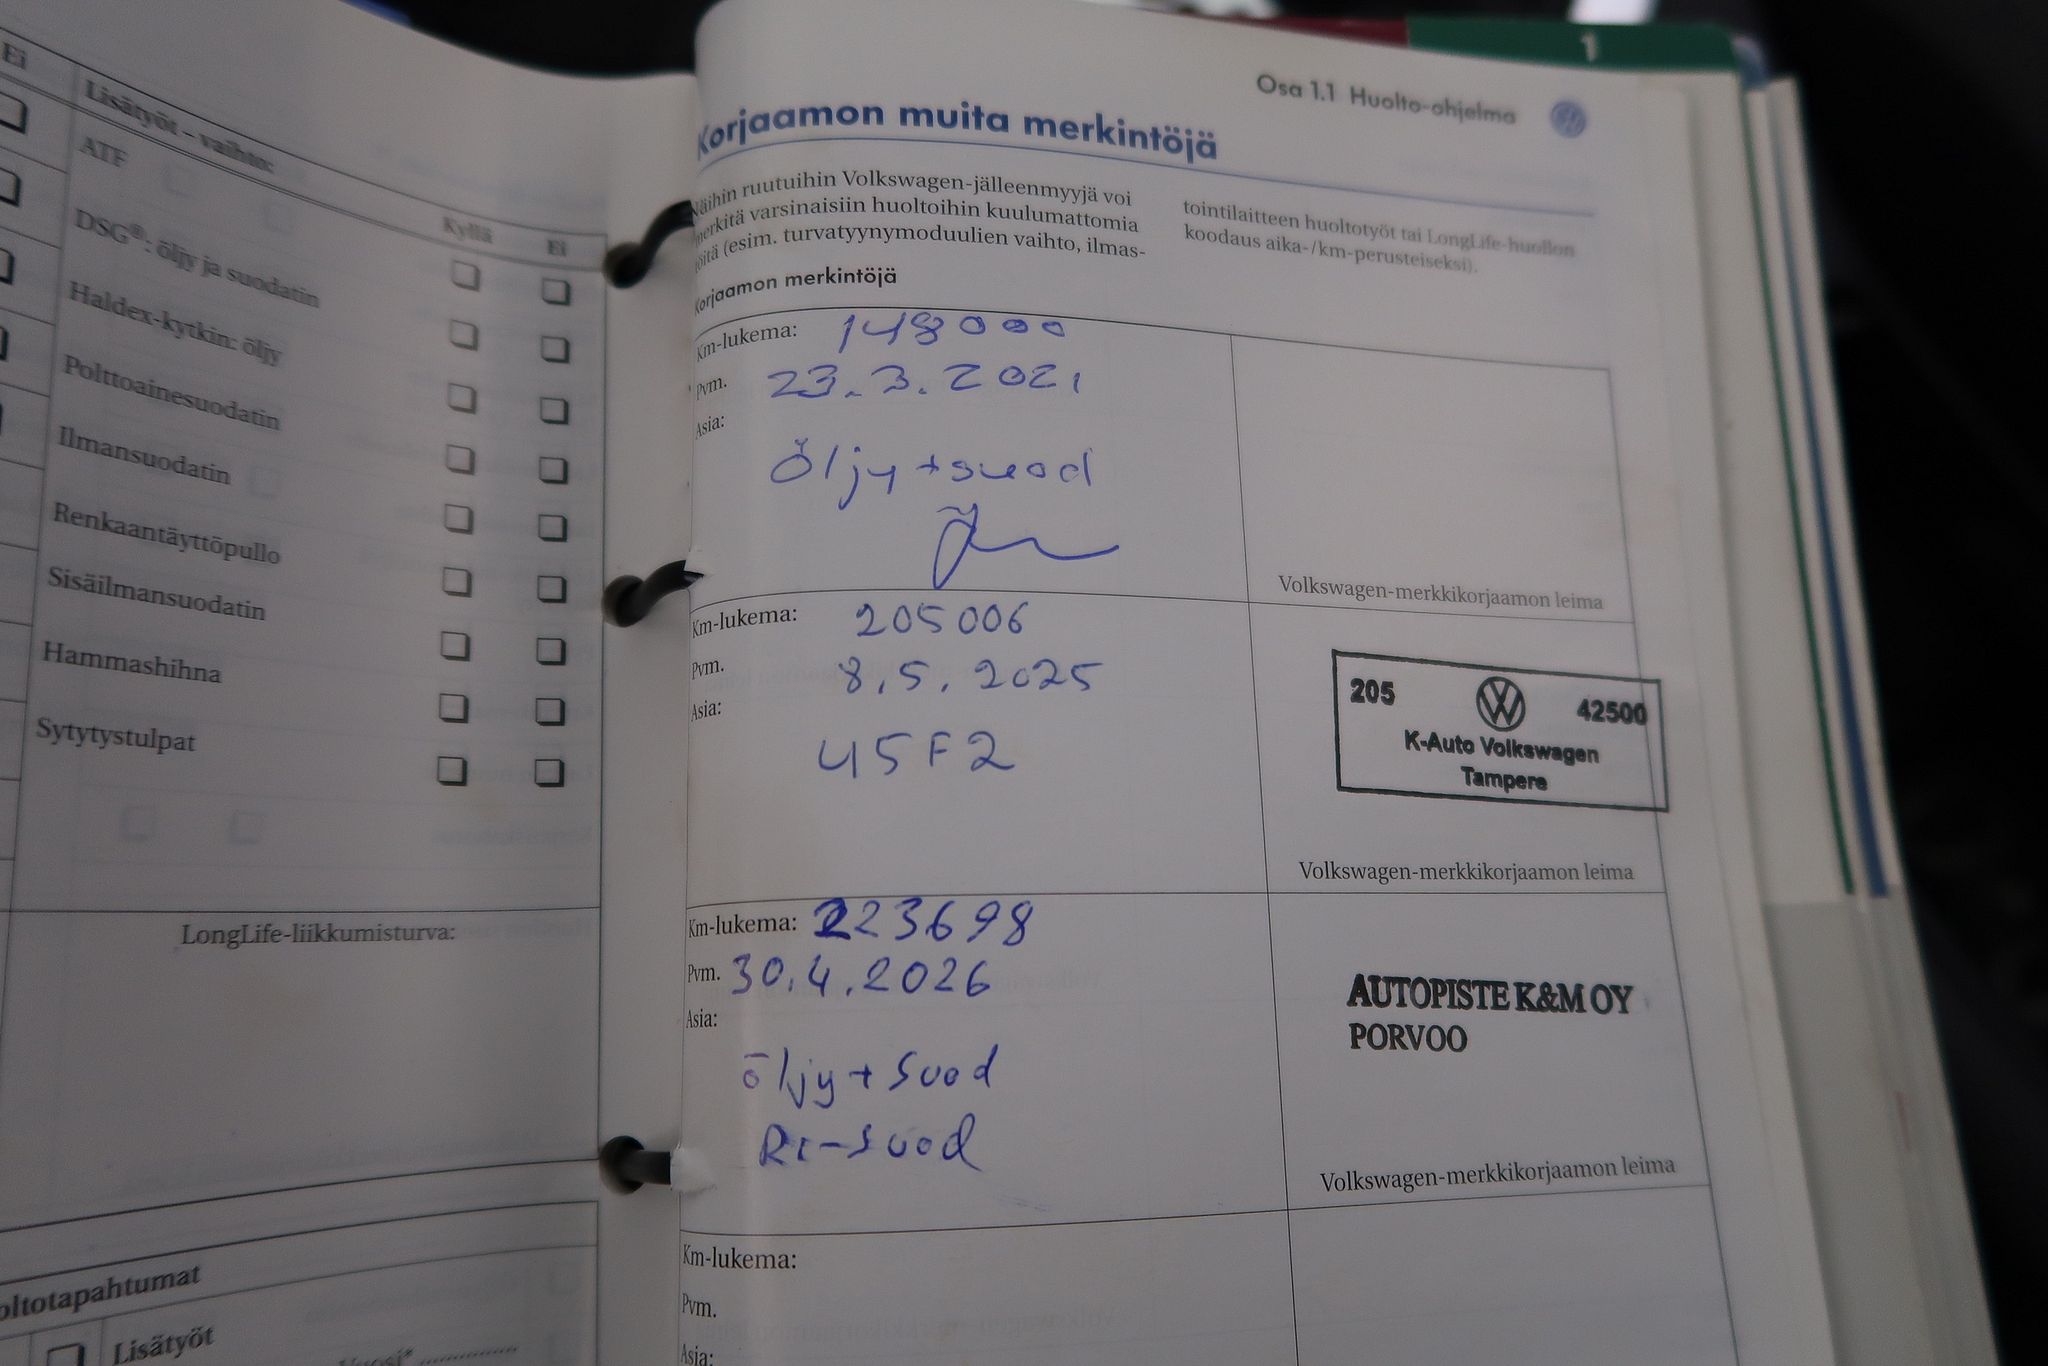 Ei
Lisätyöt – vaihto:
Kyllä
Ei
ATF
DSG®: öljy ja suodatin
Haldex-kytkin: öljy
Polttoainesuodatin
Ilmansuodatin
Renkaantäyttöpullo
Sisäilmansuodatin
Hammashihna
Sytytystulpat
LongLife-liikkumisturva:
oltotapahtumat
Lisätyöt
1
Osa 1.1 Huolto-ohjelma
Korjaamon muita merkintöjä
Näihin ruutuihin Volkswagen-jälleenmyyjä voi
merkitä varsinaisiin huoltoihin kuulumattomia
töitä (esim. turvatyynymoduulien vaihto, ilmas-
tointilaitteen huoltotyöt tai LongLife-huollon
koodaus aika-/km-perusteiseksi).
Korjaamon merkintöjä
Km-lukema: 148000
Pvm. 23.3.2021
Asia:
Öljy + suod
Volkswagen-merkkikorjaamon leima
Km-lukema: 205006
Pvm. 8.5.2025
Asia:
45F2
205 42500
K-Auto Volkswagen
Tampere
Volkswagen-merkkikorjaamon leima
Km-lukema: 223698
Pvm. 30.4.2026
Asia:
öljy + suod
Ri-suod
AUTOPISTE K&M OY
PORVOO
Volkswagen-merkkikorjaamon leima
Km-lukema:
Pvm.
Asia: